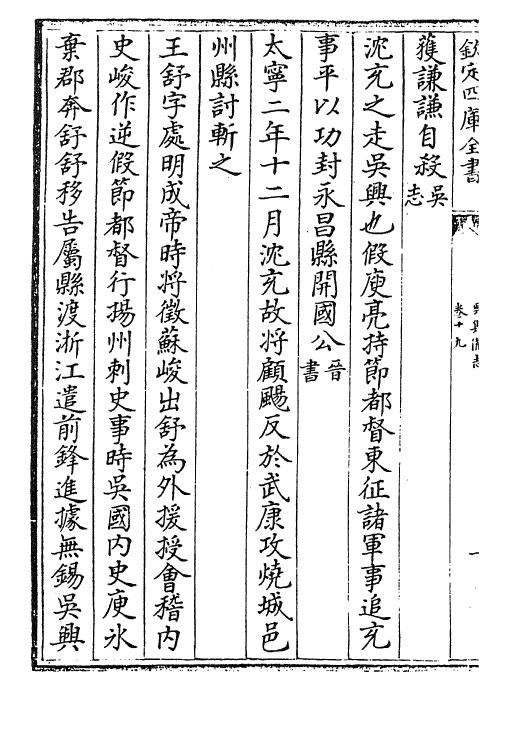 欽定四庫全書
吳興備志
卷十九
一
獲謙謙自殺吳志
沈充之走吳興也假庾亮持節都督東征諸軍事追充
事平以功封永昌縣開國公晉書
太寧二年十二月沈充故將顧颺反於武康攻燒城邑
州縣討斬之
王舒字處明成帝時將徵蘇峻出舒為外援授會稽内
史峻作逆假節都督行揚州刺史事時吳國内史庾冰
棄郡奔舒舒移告屬縣渡浙江遣前鋒進據無錫吳興